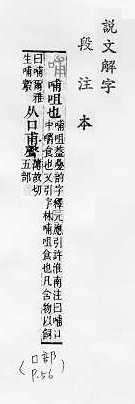 說文解字
段注本
哺 哺咀也 哺咀葢曡韵字釋元應引許淮南注曰哺口
中嚼食也又引字林哺咀食也凡含物以飼
曰哺爾雅
生哺鷇 从口甫聲 薄故切
五部
(口部
P.56)